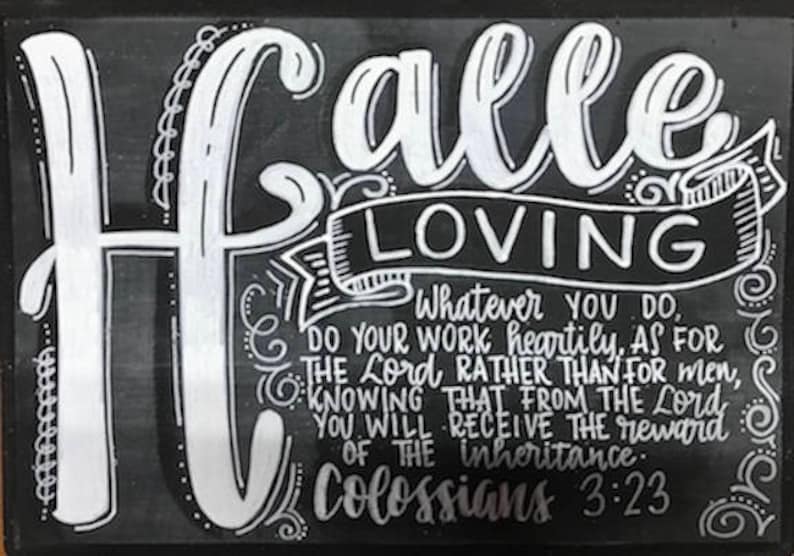 Halle
LOVING
Whatever YOU DO,
DO YOUR WORK heartily, AS FOR
THE Lord RATHER THAN FOR men,
KNOWING THAT FROM THE Lord
YOU WILL RECEIVE THE reward
OF THE inheritance.
Colossians 3:23